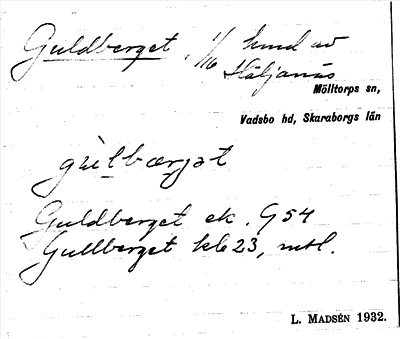 Guldberget, 1/16 hmd av
Häljanäs
Mölltorps sn,
Vadsbo hd, Skaraborgs län
gulbærjət
Guldberget ek. G54
Gullberget kb 23, mtl.
L. MADSÉN 1932.